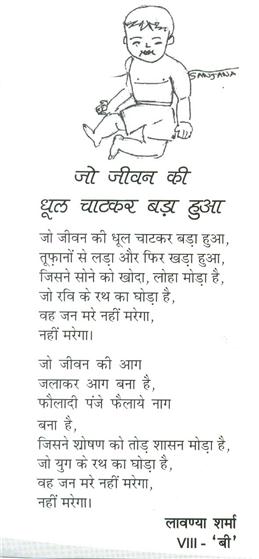 SANJANA
जो जीवन की
धूल चाटकर बड़ा हुआ
जो जीवन की धूल चाटकर बड़ा हुआ,
तूफानों से लड़ा और फिर खड़ा हुआ,
जिसने सोने को खोदा, लोहा मोड़ा है,
जो रवि के रथ का घोड़ा है,
वह जन मरे नहीं मरेगा,
नहीं मरेगा।
जो जीवन की आग
जलाकर आग बना है,
फौलादी पंजे फैलाये नाग
बना है,
जिसने शोषण को तोड़ शासन मोड़ा है,
जो युग के रथ का घोड़ा है,
वह जन मरे नहीं मरेगा,
नहीं मरेगा।
लावण्या शर्मा
VIII - 'बी'